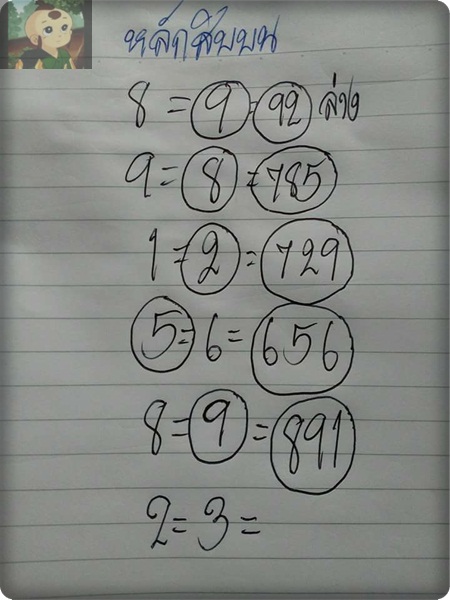 หลักสิบบน
8 = 9 = 92 ล่าง
9 = 8 = 785
1 = 2 = 729
5 = 6 = 656
8 = 9 = 891
2 = 3 =